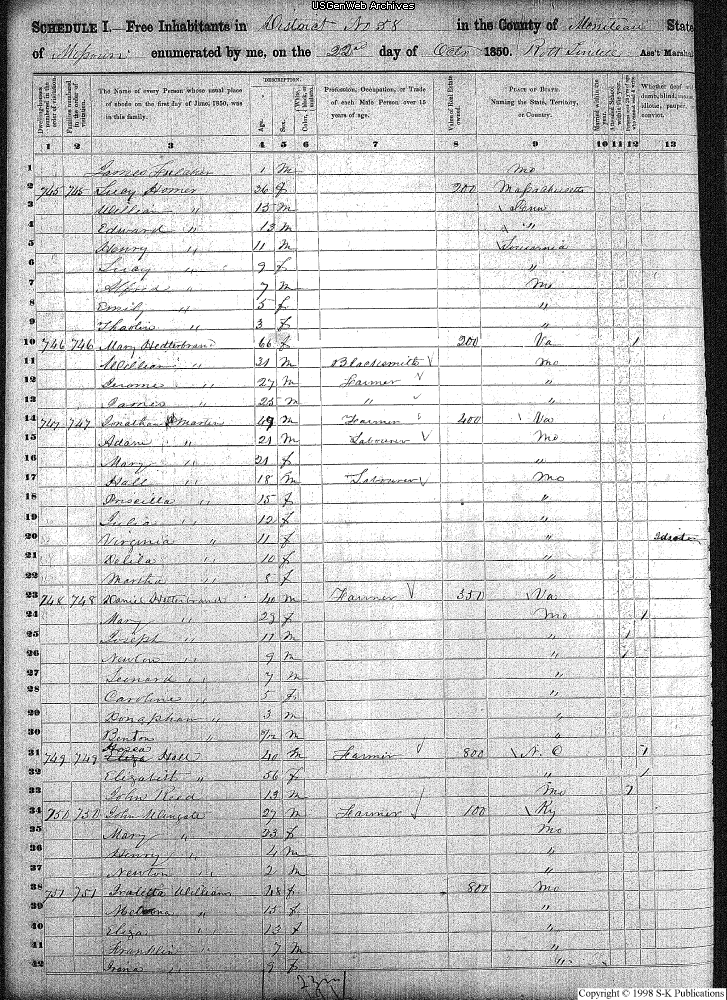 USGenWeb Archives
SCHEDULE I. Free Inhabitants in District No 58 in the County of Moniteau State
of Missouri enumerated by me, on the 22nd day of Octr 1850. Ass't Marshal
DESCRIPTION.
Dwelling-houses numbered in the order of visitation.
Families numbered in the order of visitation.
The Name of every Person whose usual place of abode on the first day of June, 1850, was in this family.
Age.
Sex.
Color, White, black, or mulatto.
Profession, Occupation, or Trade of each Male Person over 15 years of age.
Value of Real Estate owned.
PLACE OF BIRTH. Naming the State, Territory, or Country.
Married within the year.
Whether deaf
pauper
convict.
1 2 3 4 5 6 7 8 9 10 11 12 13
1 James 1 M Mo
2 745 745 Lucy Homer 36 f 200 Massachusetts
3 William " 15 M Penn
4 Edward " 13 M "
5 Henry " 11 M Louisiana
6 Lucy " 9 f "
7 Alfred " 7 M Mo
8 Emily " 5 f "
9 " 3 f "
10 746 746 Mary Hedterbrand 66 f 200 Va 1
11 William " 31 M Blacksmith Mo
12 Jerome " 27 M Farmer "
13 James " 25 M " "
14 747 747 Jonathan Martin 49 M Farmer 400 Va
15 Adam " 21 M Labourer Mo
16 Mary " 21 f "
17 Hall " 18 M Labourer Mo
18 Priscilla " 15 f "
19 Julia " 12 f "
20 Virginia " 11 f " Idiotic
21 Delila " 10 f "
22 Martha " 8 f "
23 748 748 Daniel Hetterbrand 40 M Farmer 350 Va
24 Mary " 29 f Mo 1
25 Joseph " 11 M " 1
26 Newton " 9 M " 1
27 Leonard " 7 M "
28 Caroline " 5 f "
29 Donaphan " 3 M "
30 Benton " M "
31 749 749 Hosea Hall 40 M Farmer 800 N. C 1
32 Elizabeth " 56 f " 1
33 John Reed 13 M Mo 1
34 750 750 John 27 M Farmer 100 Ky
35 Mary " 23 f Mo
36 Henry " 4 M "
37 Newton " 2 M "
38 751 751 Williams 48 f 800 Mo
39 " 15 f "
40 Eliza " 13 f "
41 Franklin " 7 M "
42 " 9 f "
Copyright © 1998 S-K Publications